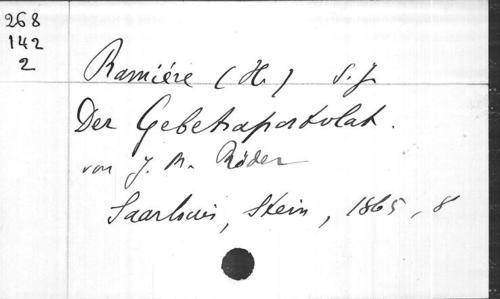 268
142
2
Ramiére (H.) S. J.
Der Gebetsapostolat.
von J. M. Röder
Saarlouis, Stein, 1865, 8